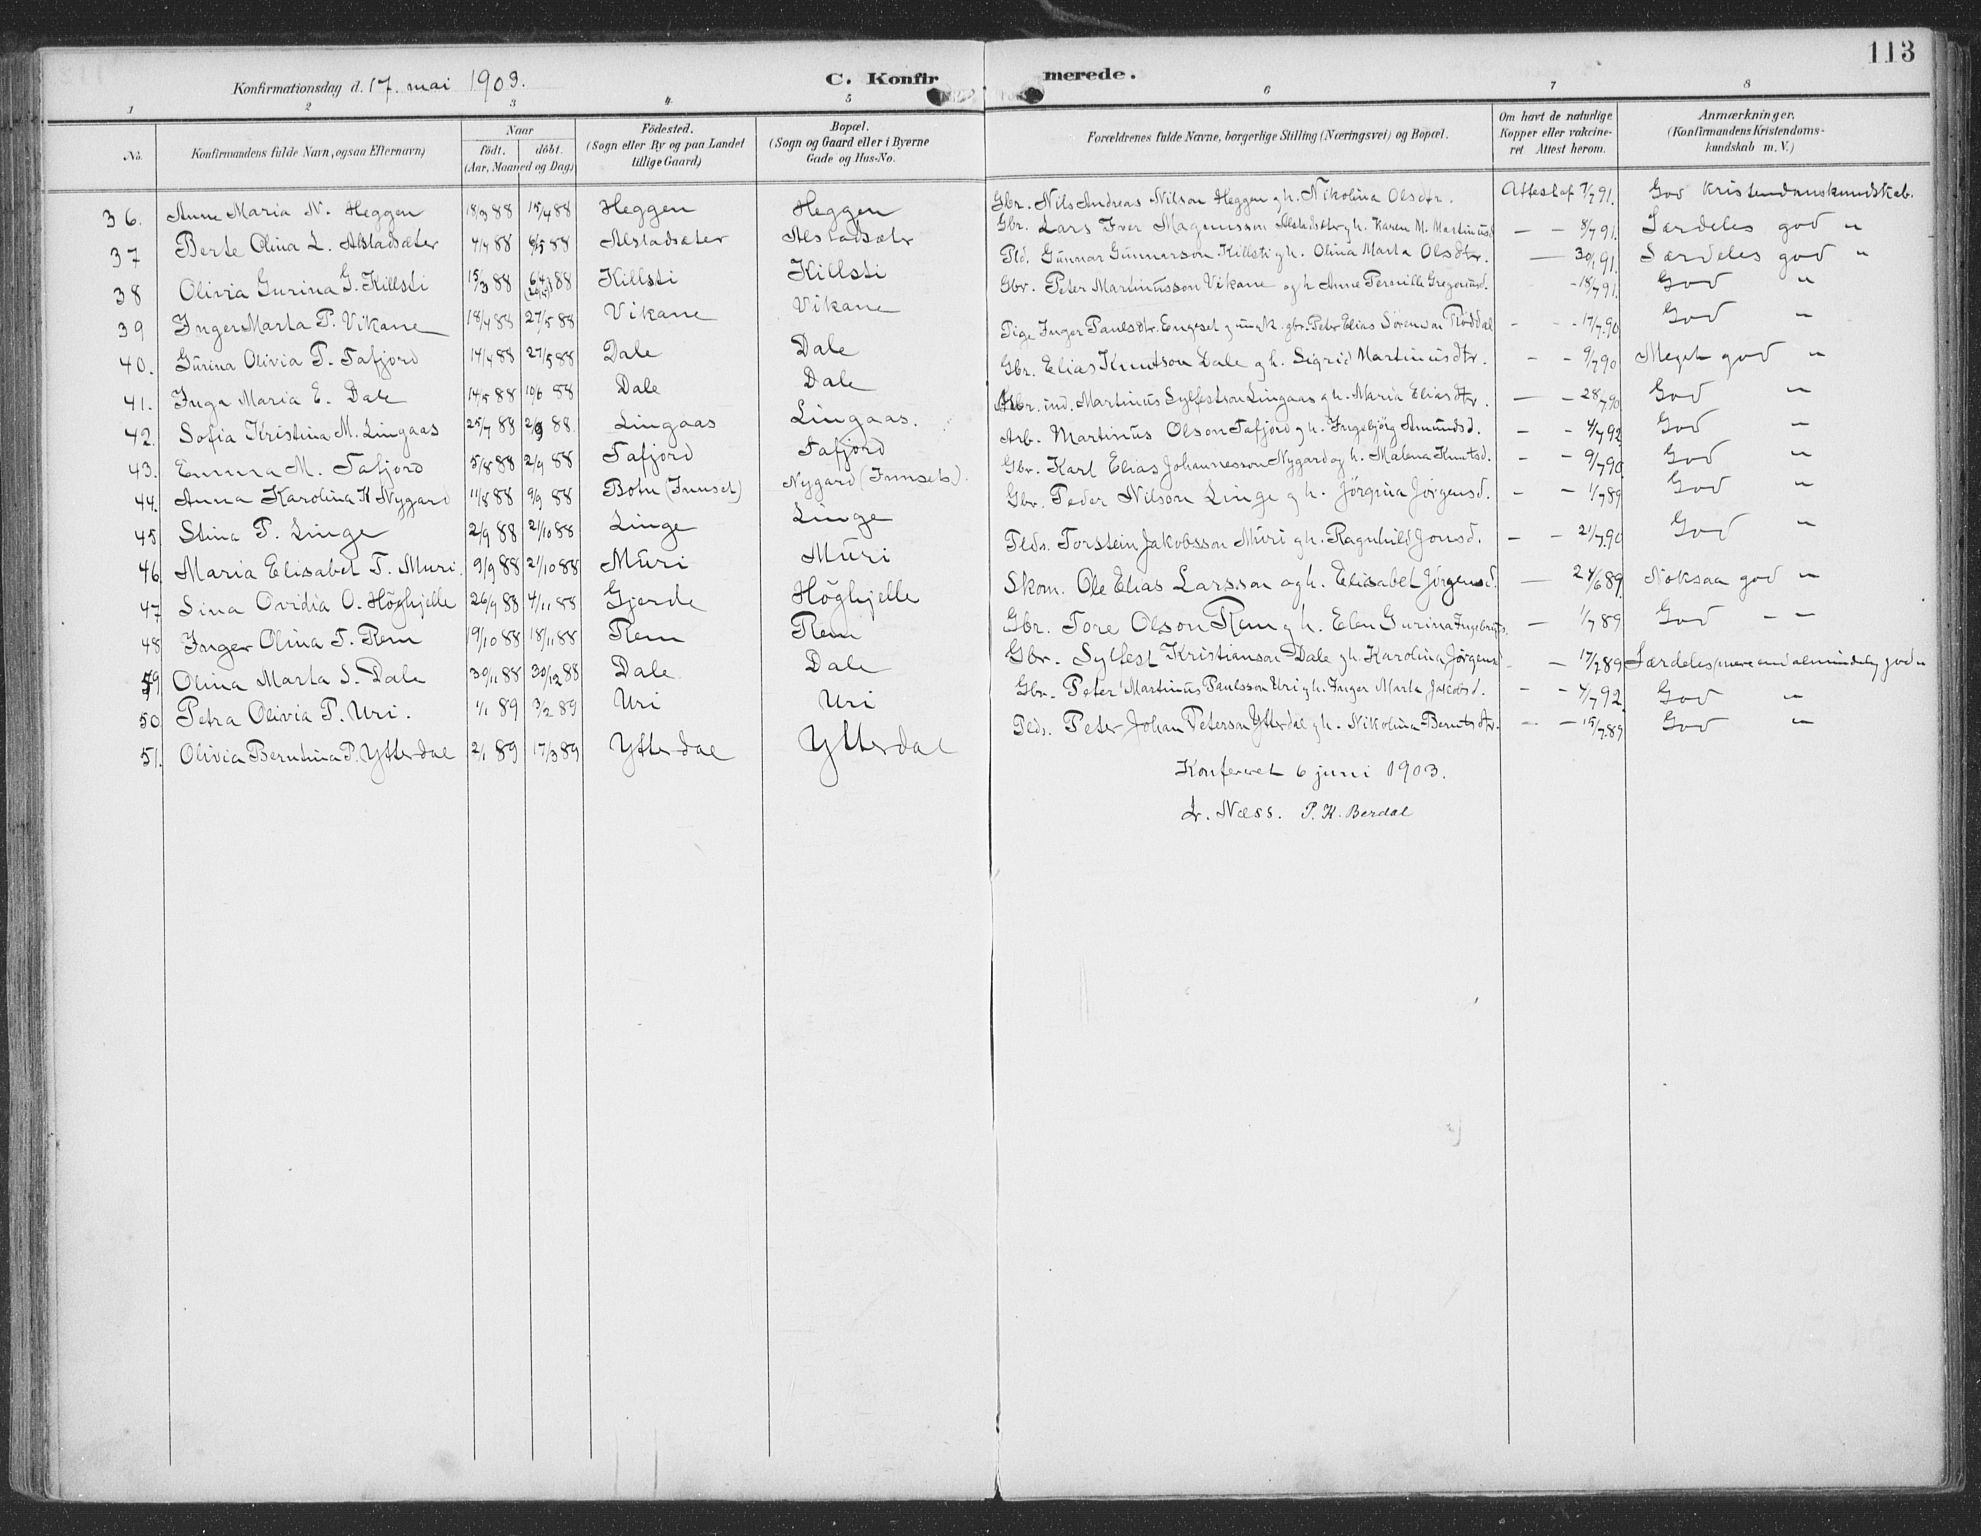 113
Konfirmationsdag d. 17. mai 1903.
C. Konfirmerede.
1 2 3 4 5 6 7 8
No. Konfirmandens fulde Navn, ogsaa Efternavn) Naar födt. döbt. (Aar, Maaned og Dag) Födested. (Sogn eller By og paa Landet tillige Gaard) Bopæl. (Sogn og Gaard eller i Byerne Gade og Hus-No. Forældrenes fulde Navne, borgerlige Stilling (Næringsvei) og Bopæl. Om havt de naturlige Kopper eller vaccineret Attest herom. Anmærkninger. (Konfirmandens Kristendomskundskab m. V.)
36. Anne Maria N. Heggen 18/3 88 15/4 88 Heggen Heggen Gbr. Nils Andreas Nilson Heggen g h. Nikolina Olsdtr. Attest af 7/7 91. God Kristendomskundskab.
37 Berte Olina L. Alstadsæter 4/4 88 6/5 88 Alstadsæter Alstadsætr Gbr. Lars Iver Magnusson Alstadsæter g h. Karen M. Martinusd — — 8/7 91. Særdeles god "
38 Olivia Gurina G. Killsti 15/3 88 88 Killsti Killsti Pld. Gunnar Gunnarson Killsti g h. Olina Marta Olsdtr. — 30/1 91. Særdeles god "
39 Inger Marta P. Vikane 18/4 88 27/5 88 Vikane Vikane Gbr. Peter Martinusson Vikane og h Anne Pernille Gregoriusd. - 18/7 91. God "
40. Gurina Olivia P. Tafjord 14/4 88 27/5 88 Dale Dale Pige Inger Paulsdtr. Engeset g ungk. gbr. Peter Elias Sörenson Röddal - - 17/7 90 God "
41. Inga Maria E. Dale 14/5 88 10/6 88 Dale Dale Gbr. Elias Knutson Dale g h. Sigrid Martinusdtr. - - 9/7 90 Meget god "
42. Sofia Kristina M. Lingaas 25/7 88 2/9 88. Lingaas Lingaas. Martinus Sylfestson Lingaas g h. Maria Eliasdtr. — - 28/7 90 God "
43. Emma M. Tafjord 5/8 88 2/9 88 Tafjord Tafjord Arb. Martinus Olson Tafjord g h. Ingebjörg Amundsd. - - 4/7 92 God "
44. Anna Karolina K Nygard 11/8 88 9/9 88 Botn (Innset) Nygard (Innsets). Gbr. Karl Elias Johannesson Nygard og h. Malena Knutsd. - - 9/7 90. God "
45 Stina P. Linge 2/9 88 21/10 88 Linge Linge Gbr. Peder Nilson Linge g h. Jörgina Jörgensd. - - 1/7 89 God "
46. Maria Elisabet T. Muri. 9/9 88 21/10 88 Muri Muri Plds. Torstein Jakobsson Muri g h. Ragnhild Jonsd. - - 21/7 90 God "
47 Sina Ovidia O. Höghjelle 26/9 88 4/11 88 Gjerde Höghjelle Skom. Ole Elias Larsson og h. Elisabet Jörgensd. — 24/6 89. Noksaa god "
48 Inger Olina T. Rem 19/10 88 18/11 88 Rem Rem Gbr. Tore Olson Rem g h. Elen Gurina - 1/7 89 God - -
49 Olina Marta S. Dale 30/11 88 30/12 88 Dale Dale Gbr. Sylfest Kristianson Dale g h. Karolina Jörgensd — - 17/7 89 Særdeles (mere end almindelig) god "
50 Petra Olivia P. Uri. 1/1 89 3/2 89 Uri Uri Gbr. Peter Martinus Paulsson Uri g h. Inger Marta Jakobsd. - - 4/7 92. God "
51. Olivia Berntina P. Ytterdal 2/1 89 17/3 89 Ytterdal Ytterdal Plds. Peter Johan Peterson Ytterdal g h. Nikolina Berntsdtr. - - 15/7 89 God "
Konfereret 6 juni 1903.
L. Næss. P. K. Berdal